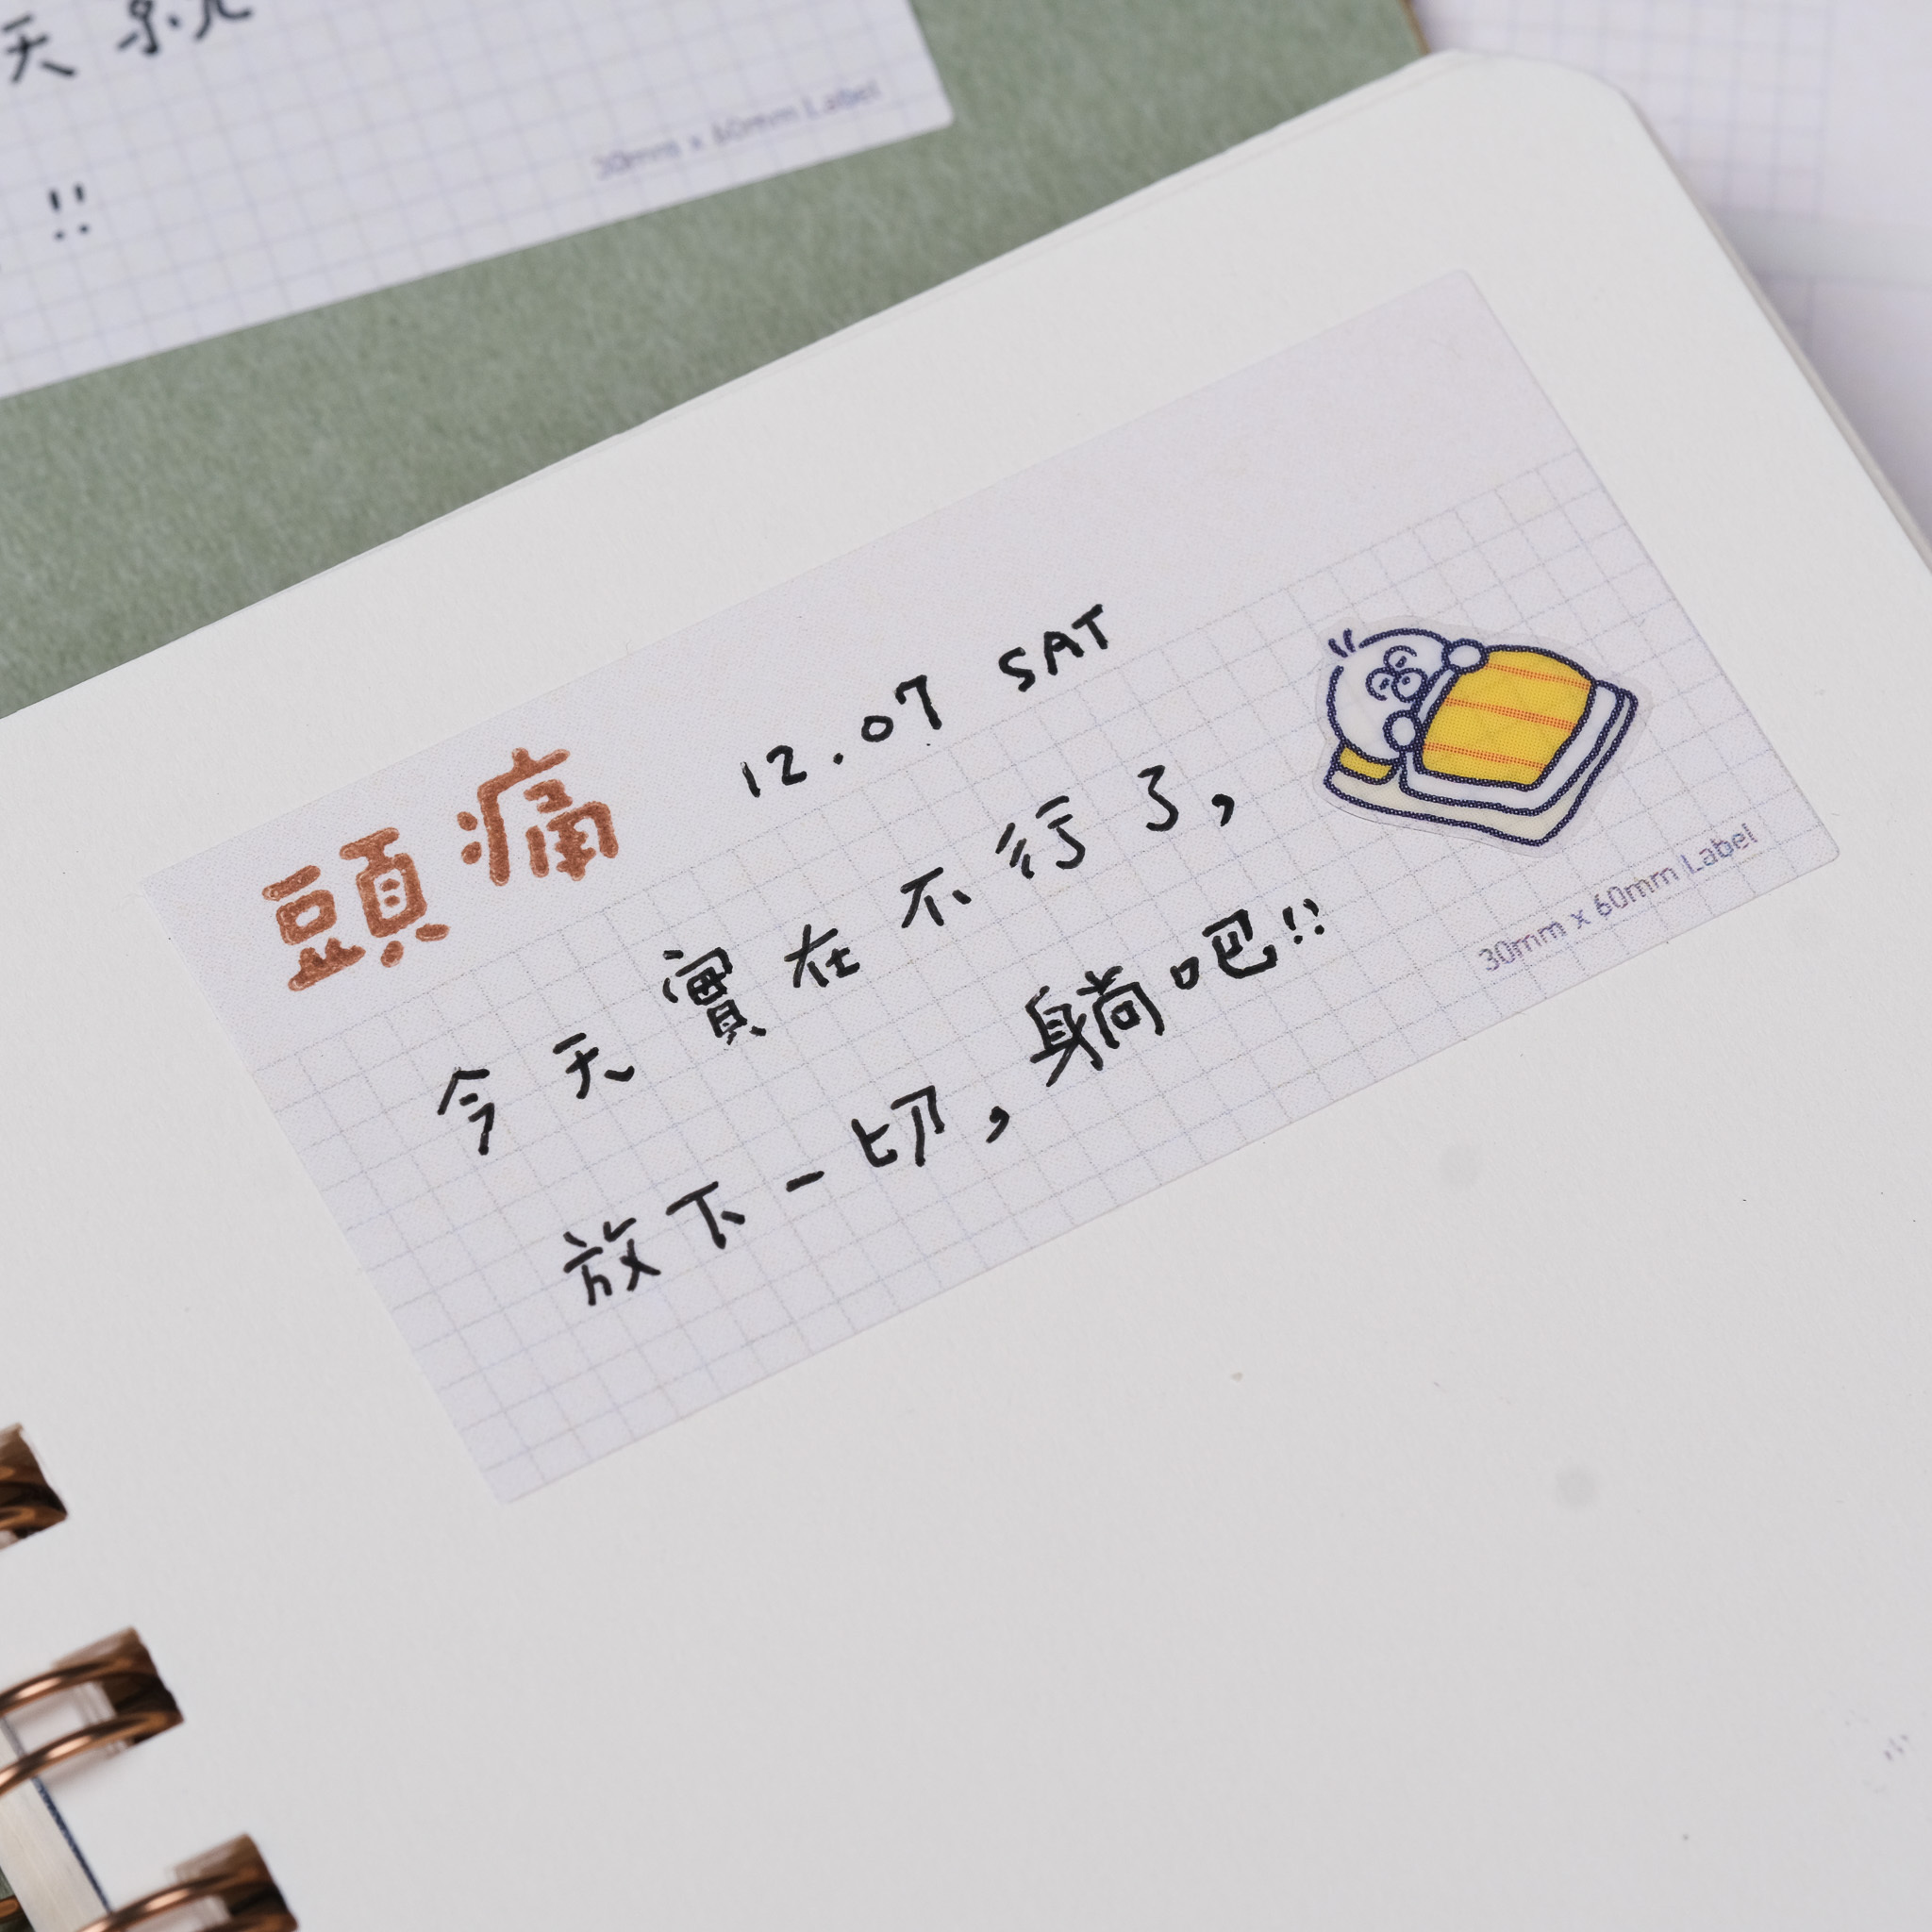 天就
!!
30mm x 60mm Label
頭痛
12.07 SAT
今天實在不行了,
放下一切,躺吧!!
30mm x 60mm Label